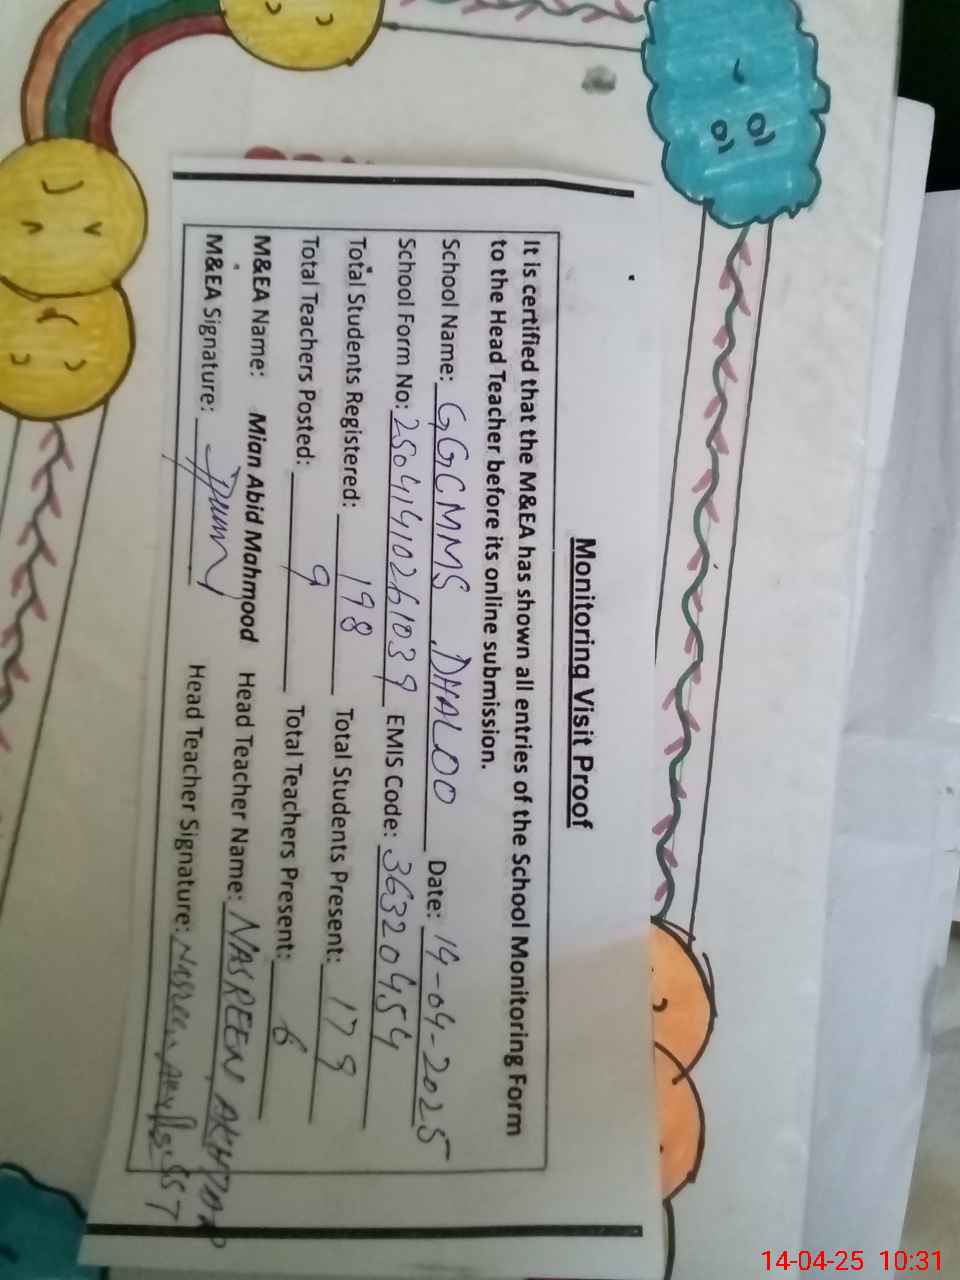 Monitoring Visit Proof
It is certified that the M&EA has shown all entries of the School Monitoring Form
to the Head Teacher before its online submission.
School Name: GGCMMS DHALOO Date: 14-04-2025
School Form No: 25041410261039 EMIS Code: 36320454
Total Students Registered: 198 Total Students Present: 179
Total Teachers Posted: 9 Total Teachers Present: 6
M&EA Name: Mian Abid Mahmood Head Teacher Name: NASREEN AKHTAR
M&EA Signature: Head Teacher Signature: Nasreen SST
14-04-25 10:31